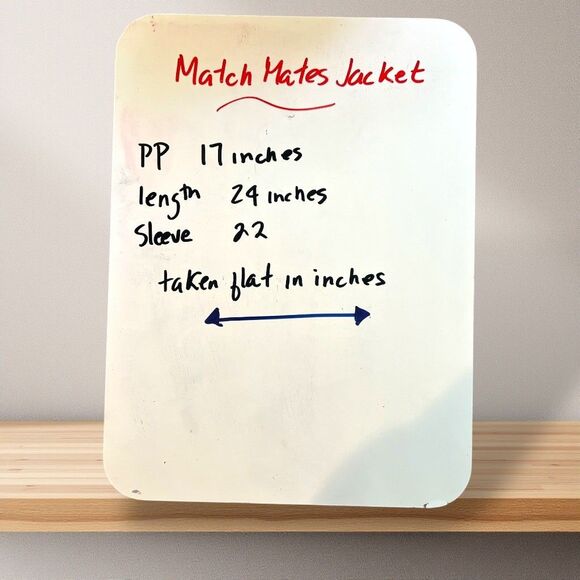 Match Mates Jacket
PP 17 inches
length 24 inches
Sleeve 22
taken flat in inches